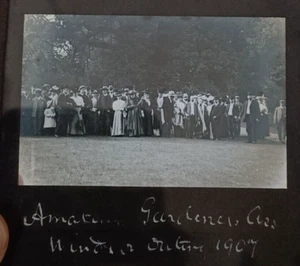 Amateur Gardeners Ass
Windsor Outing 1907